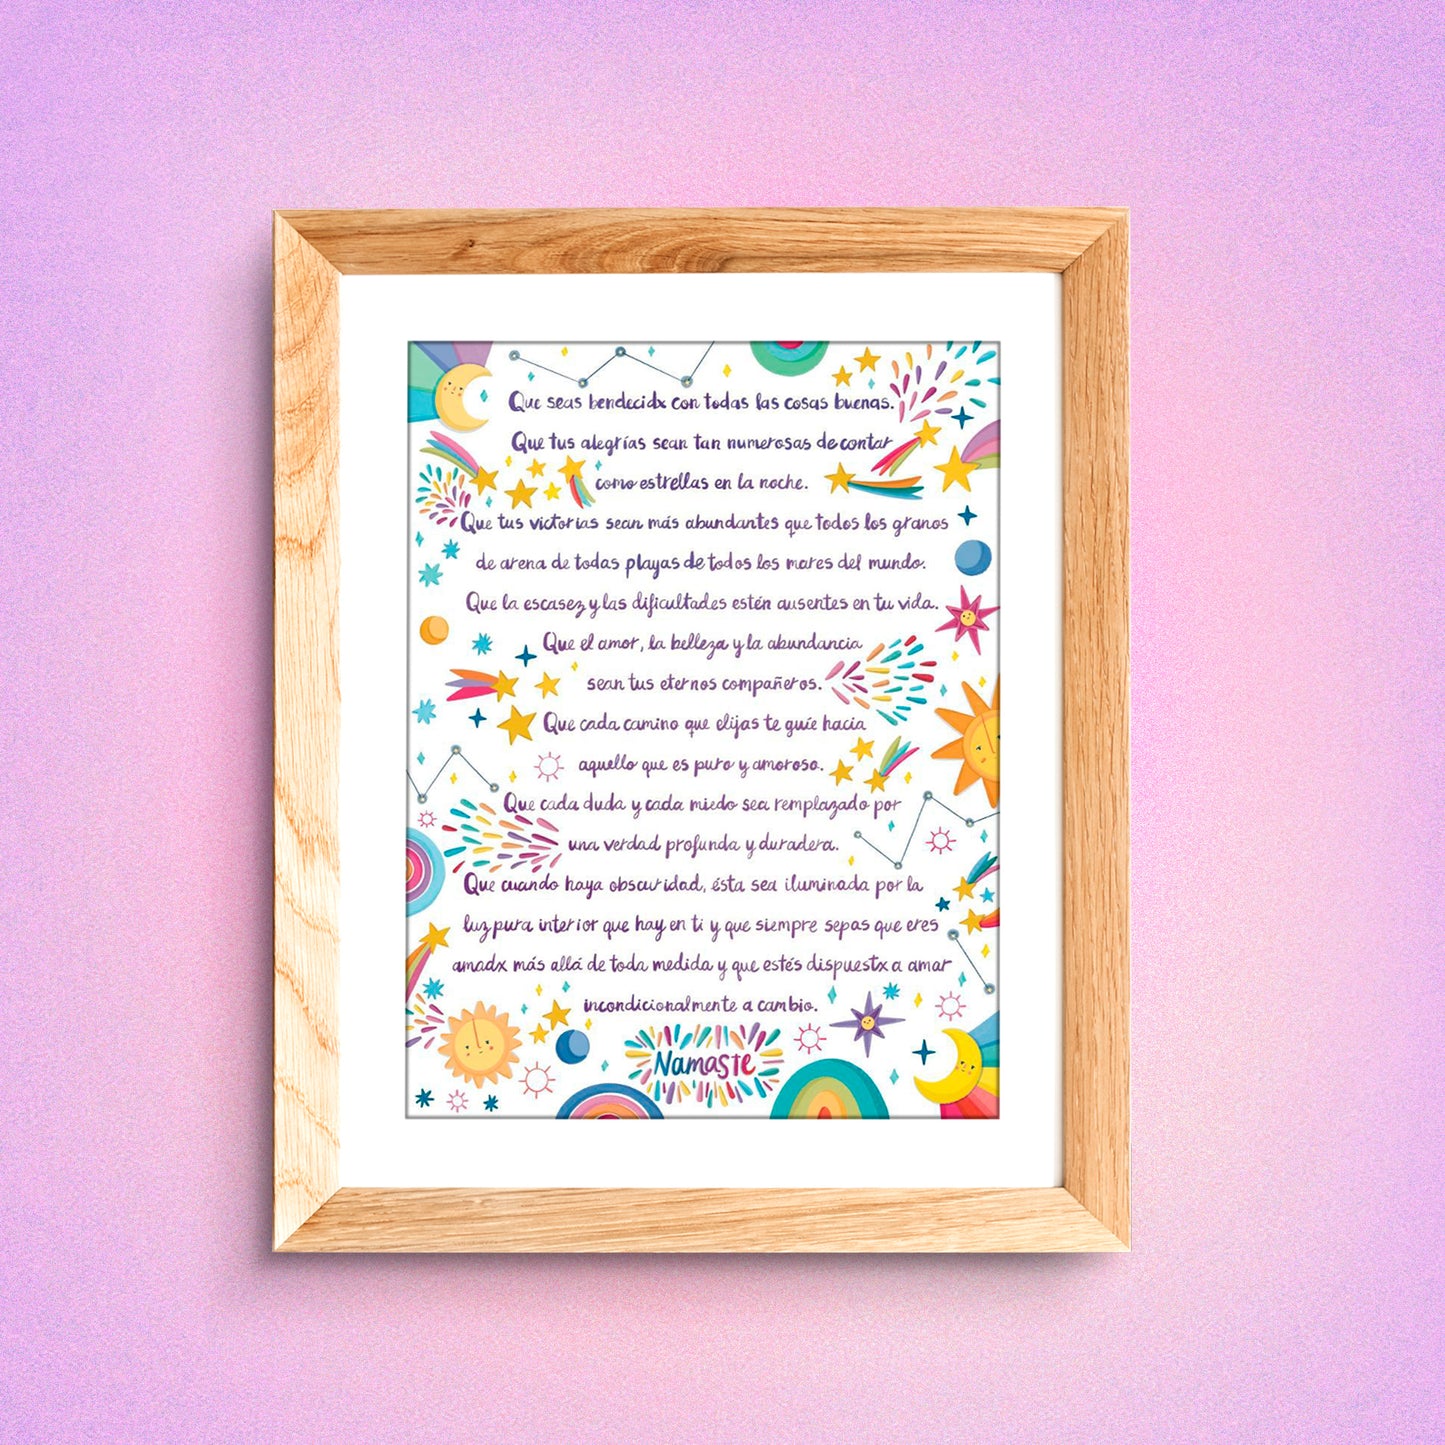 Que seas bendecidx con todas las cosas buenas.
Que tus alegrías sean tan numerosas de contar
como estrellas en la noche.
Que tus victorias sean más abundantes que todos los granos
de arena de todas playas de todos los mares del mundo.
Que la escasez y las dificultades estén ausentes en tu vida.
Que el amor, la belleza y la abundancia
sean tus eternos compañeros.
Que cada camino que elijas te guíe hacia
aquello que es puro y amoroso.
Que cada duda y cada miedo sea remplazado por
una verdad profunda y duradera.
Que cuando haya obscuridad, ésta sea iluminada por la
luz pura interior que hay en ti y que siempre sepas que eres
amadx más allá de toda medida y que estés dispuestx a amar
incondicionalmente a cambio.
Namaste